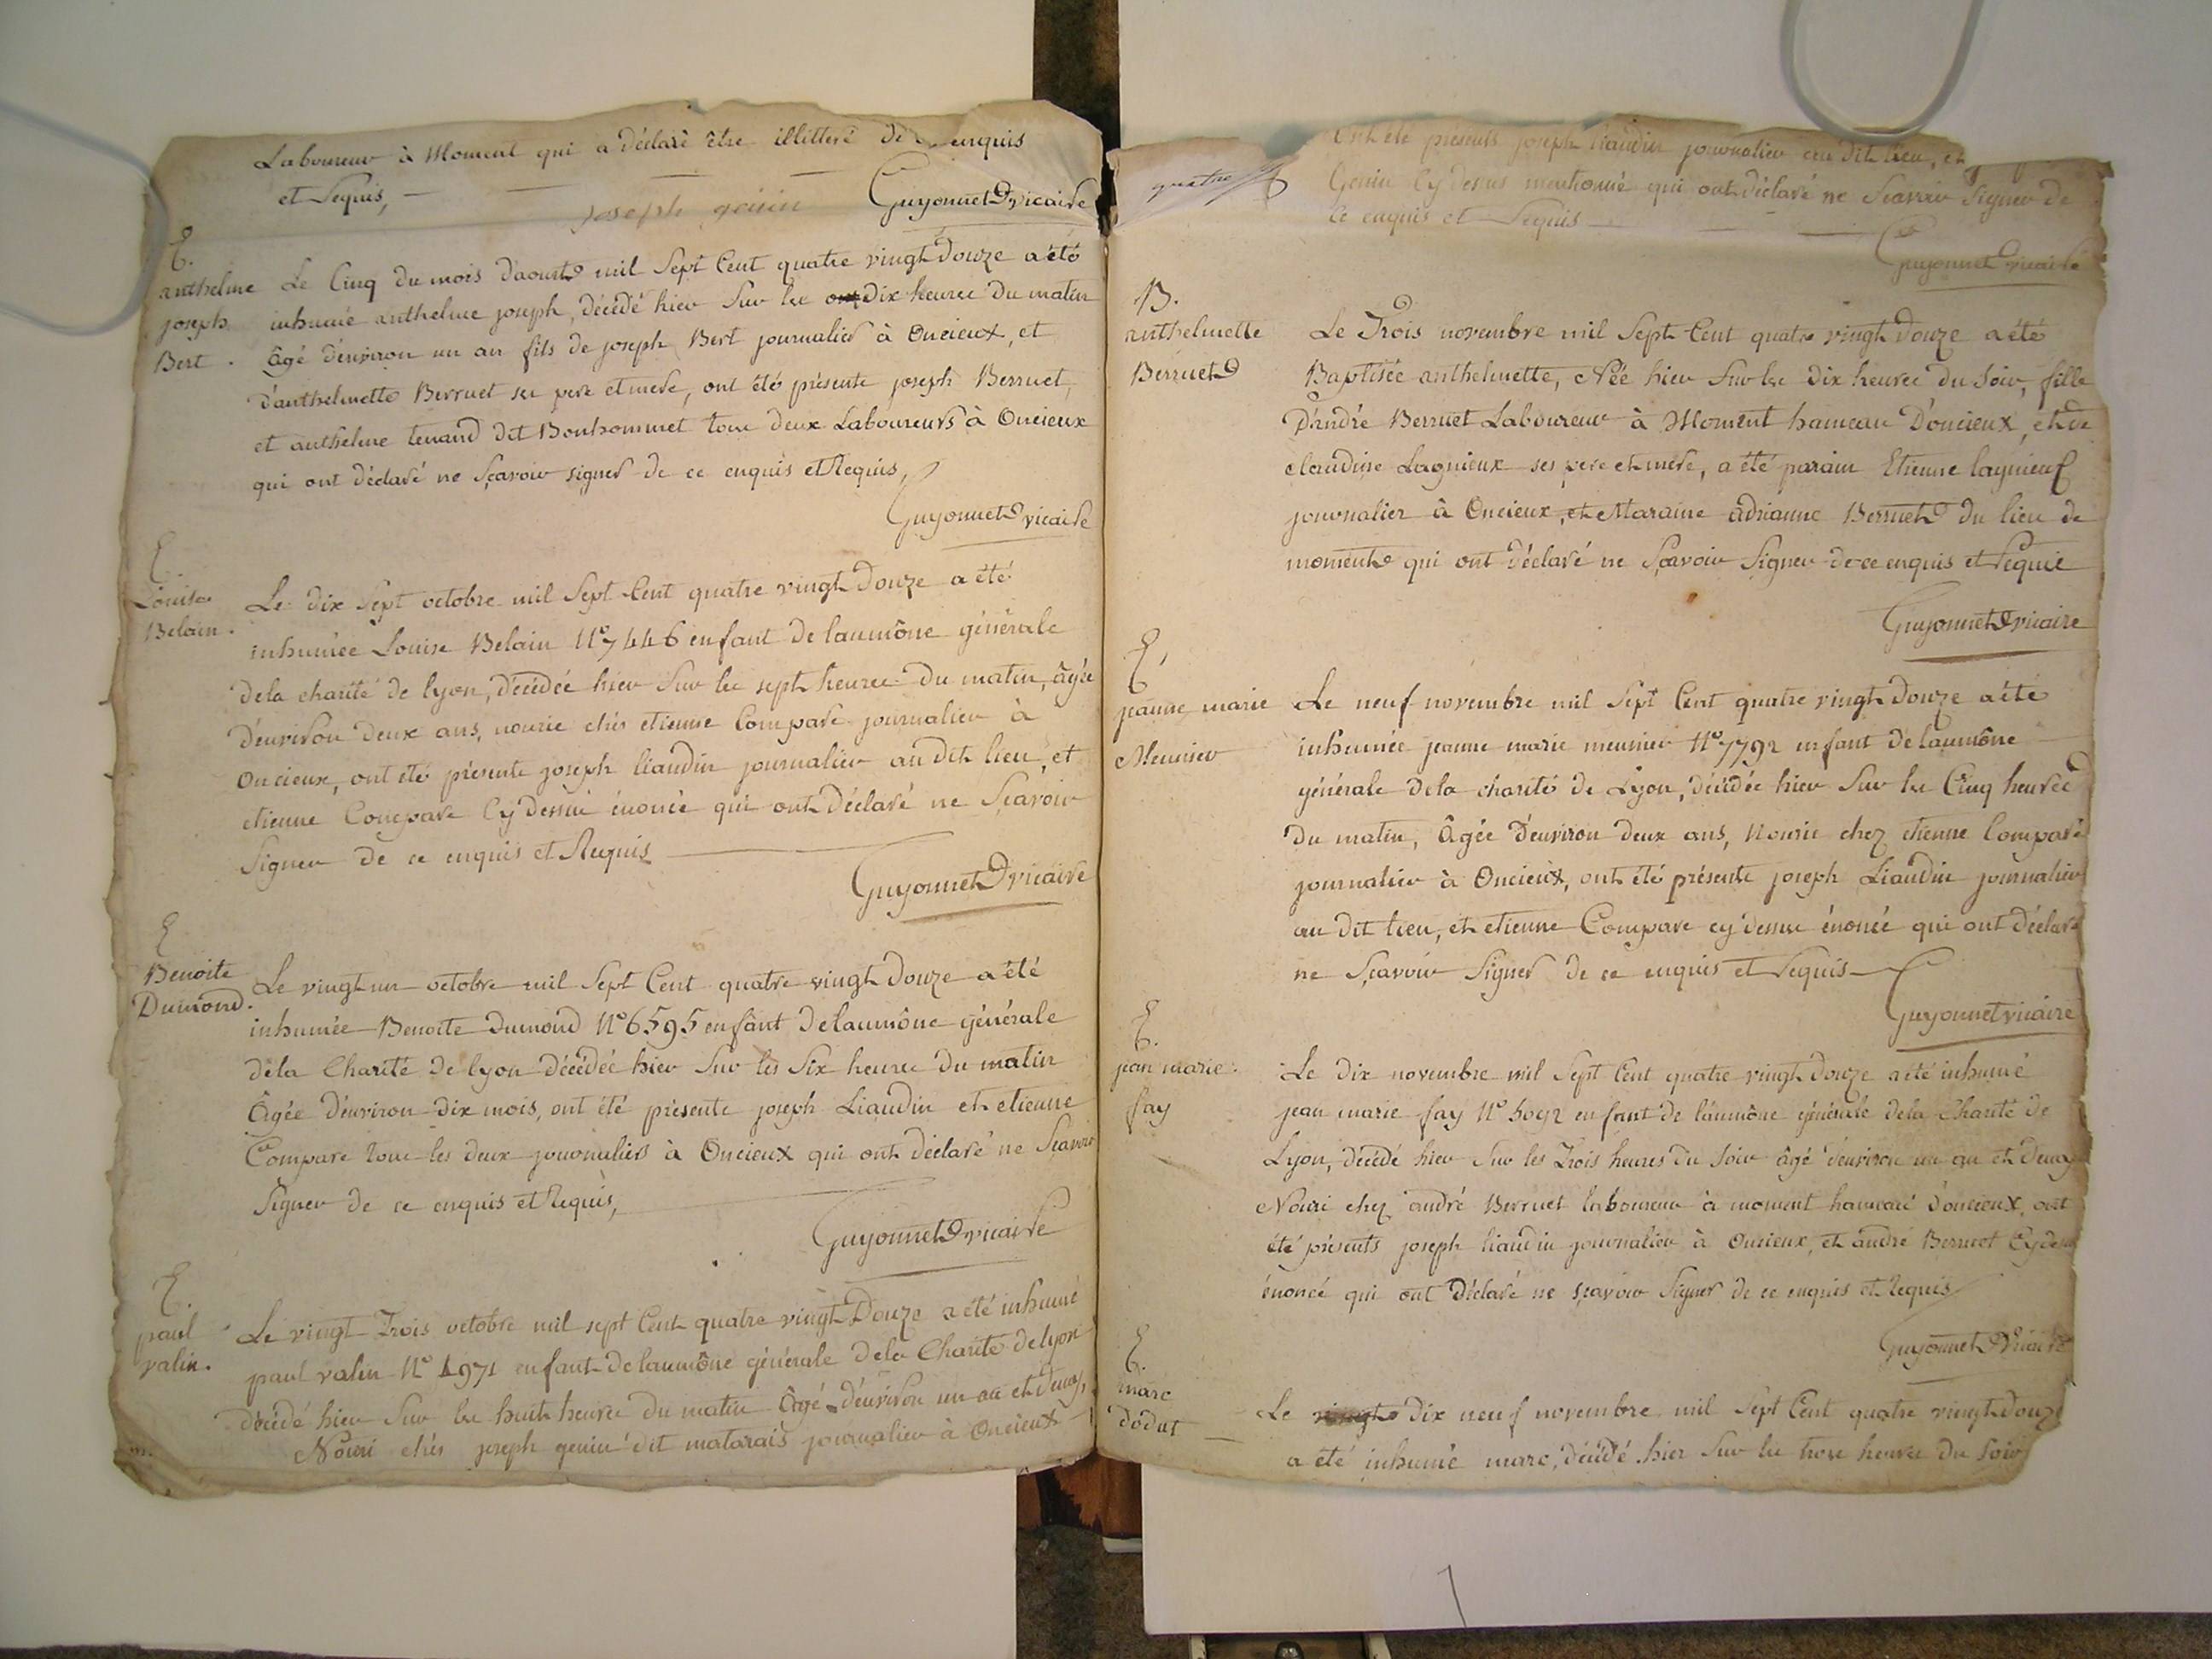 Laboureur à Moment qui a déclaré être illitteré de enquis
et Requis,
joseph genin Guyonnet vicaire
E.
anthelme
joseph
Bert.
Le Cinq du mois d'aoust mil Sept Cent quatre vingt Douze a été
inhumé anthelme joseph, décédé hier Sur les dix heures du matin
âgé d'environ un an fils de joseph Bert journalier à Oncieux, et
d'anthelmette Berruet ses pere et mere, ont été présents joseph Berruet,
et anthelme tenand dit Bonhommet tous deux Laboureurs à Oncieux
qui ont déclaré ne Sçavoir signer de ce enquis et Requis,
Guyonnet vicaire
E
Louise
Belain.
Le dix Sept octobre mil Sept Cent quatre vingt Douze a été
inhumée Louise Belain N° 7446 enfant de laumône générale
dela charité de lyon, décédée hier Sur les sept heures du matin, âgée
d'environ deux ans, nourie chés etienne Compare journalier à
Oncieux, ont été présents joseph liaudin journalier au dit lieu, et
etienne Compare Cy dessus énoncé qui ont déclaré ne Sçavoir
Signer de ce enquis et Requis
Guyonnet vicaire
E
Benoite
Dumond.
Le vingt un octobre mil Sept Cent quatre vingt Douze a été
inhumée Benoite Dumond N° 6595 enfant delaumône générale
dela Charité de lyon décédée hier Sur les Six heures du matin
âgée d'environ dix mois, ont été présents joseph Liaudin et etienne
Compare tous les deux journaliers à Oncieux qui ont déclaré ne Sçavoir
Signer de ce enquis et Requis,
Guyonnet vicaire
E.
paul
valin.
Le vingt Trois octobre mil sept Cent quatre vingt Douze a été inhumé
paul valin N° 4971 enfant delaumône générale dela Charité delyon
décédé hier Sur les huit heures du matin âgé d'environ un an et demy,
Nouri chés joseph genin dit matarais journalier à Oncieux
quatre
Ont été présents joseph liaudin journalier au dit lieu, et
Genin Cy dessus mentionné qui ont déclaré ne Sçavoir Signer de
Ce enquis et Requis
Guyonnet vicaire
B.
anthelmette
Berruet
Le Trois novembre mil Sept Cent quatre vingt Douze a été
Baptisée anthelmette, Née hier Sur les dix heures du Soir, fille
D'andré Berruet Laboureur à Moment hameau D'oncieux, et de
claudine Lagnieux ses pere et mere, a été parain Etienne lagnieux
journalier à Oncieux, et Maraine adrianne Berruet du lieu de
moment qui ont déclaré ne Sçavoir Signer de ce enquis et Requis
Guyonnet vicaire
E,
jeanne marie
Meunier
Le neuf novembre mil Sept Cent quatre vingt Douze a été
inhumée jeanne marie meunier N° 7792 enfant de laumône
générale dela charité de Lyon, décédée hier Sur les Cinq heures
du matin, âgée d'environ deux ans, Nourie chez etienne Compare
journalier à Oncieux, ont été présents joseph Liaudin journalier
au dit lieu, et etienne Compare cy dessus énoncé qui ont déclaré
ne Sçavoir Signer de ce enquis et Requis
Guyonnet vicaire
E.
jean marie
fay
Le dix novembre mil Sept Cent quatre vingt Douze a été inhumé
jean marie fay N° 5092 enfant de l'aumône générale dela Charité de
Lyon, décédé hier Sur les Trois heures du Soir âgé d'environ un an et demy
Nouri chez andré Berruet laboureur à moment hameau d'oncieux, ont
été présents joseph liaudin journalier à Oncieux, et andré Berruet Cy dessus
énoncé qui ont déclaré ne sçavoir Signer de ce enquis et Requis
Guyonnet vicaire
E.
marc
dodat
Le dix neuf novembre mil Sept Cent quatre vingt douze
a été inhumé marc, décédé hier Sur les trois heures du Soir
7